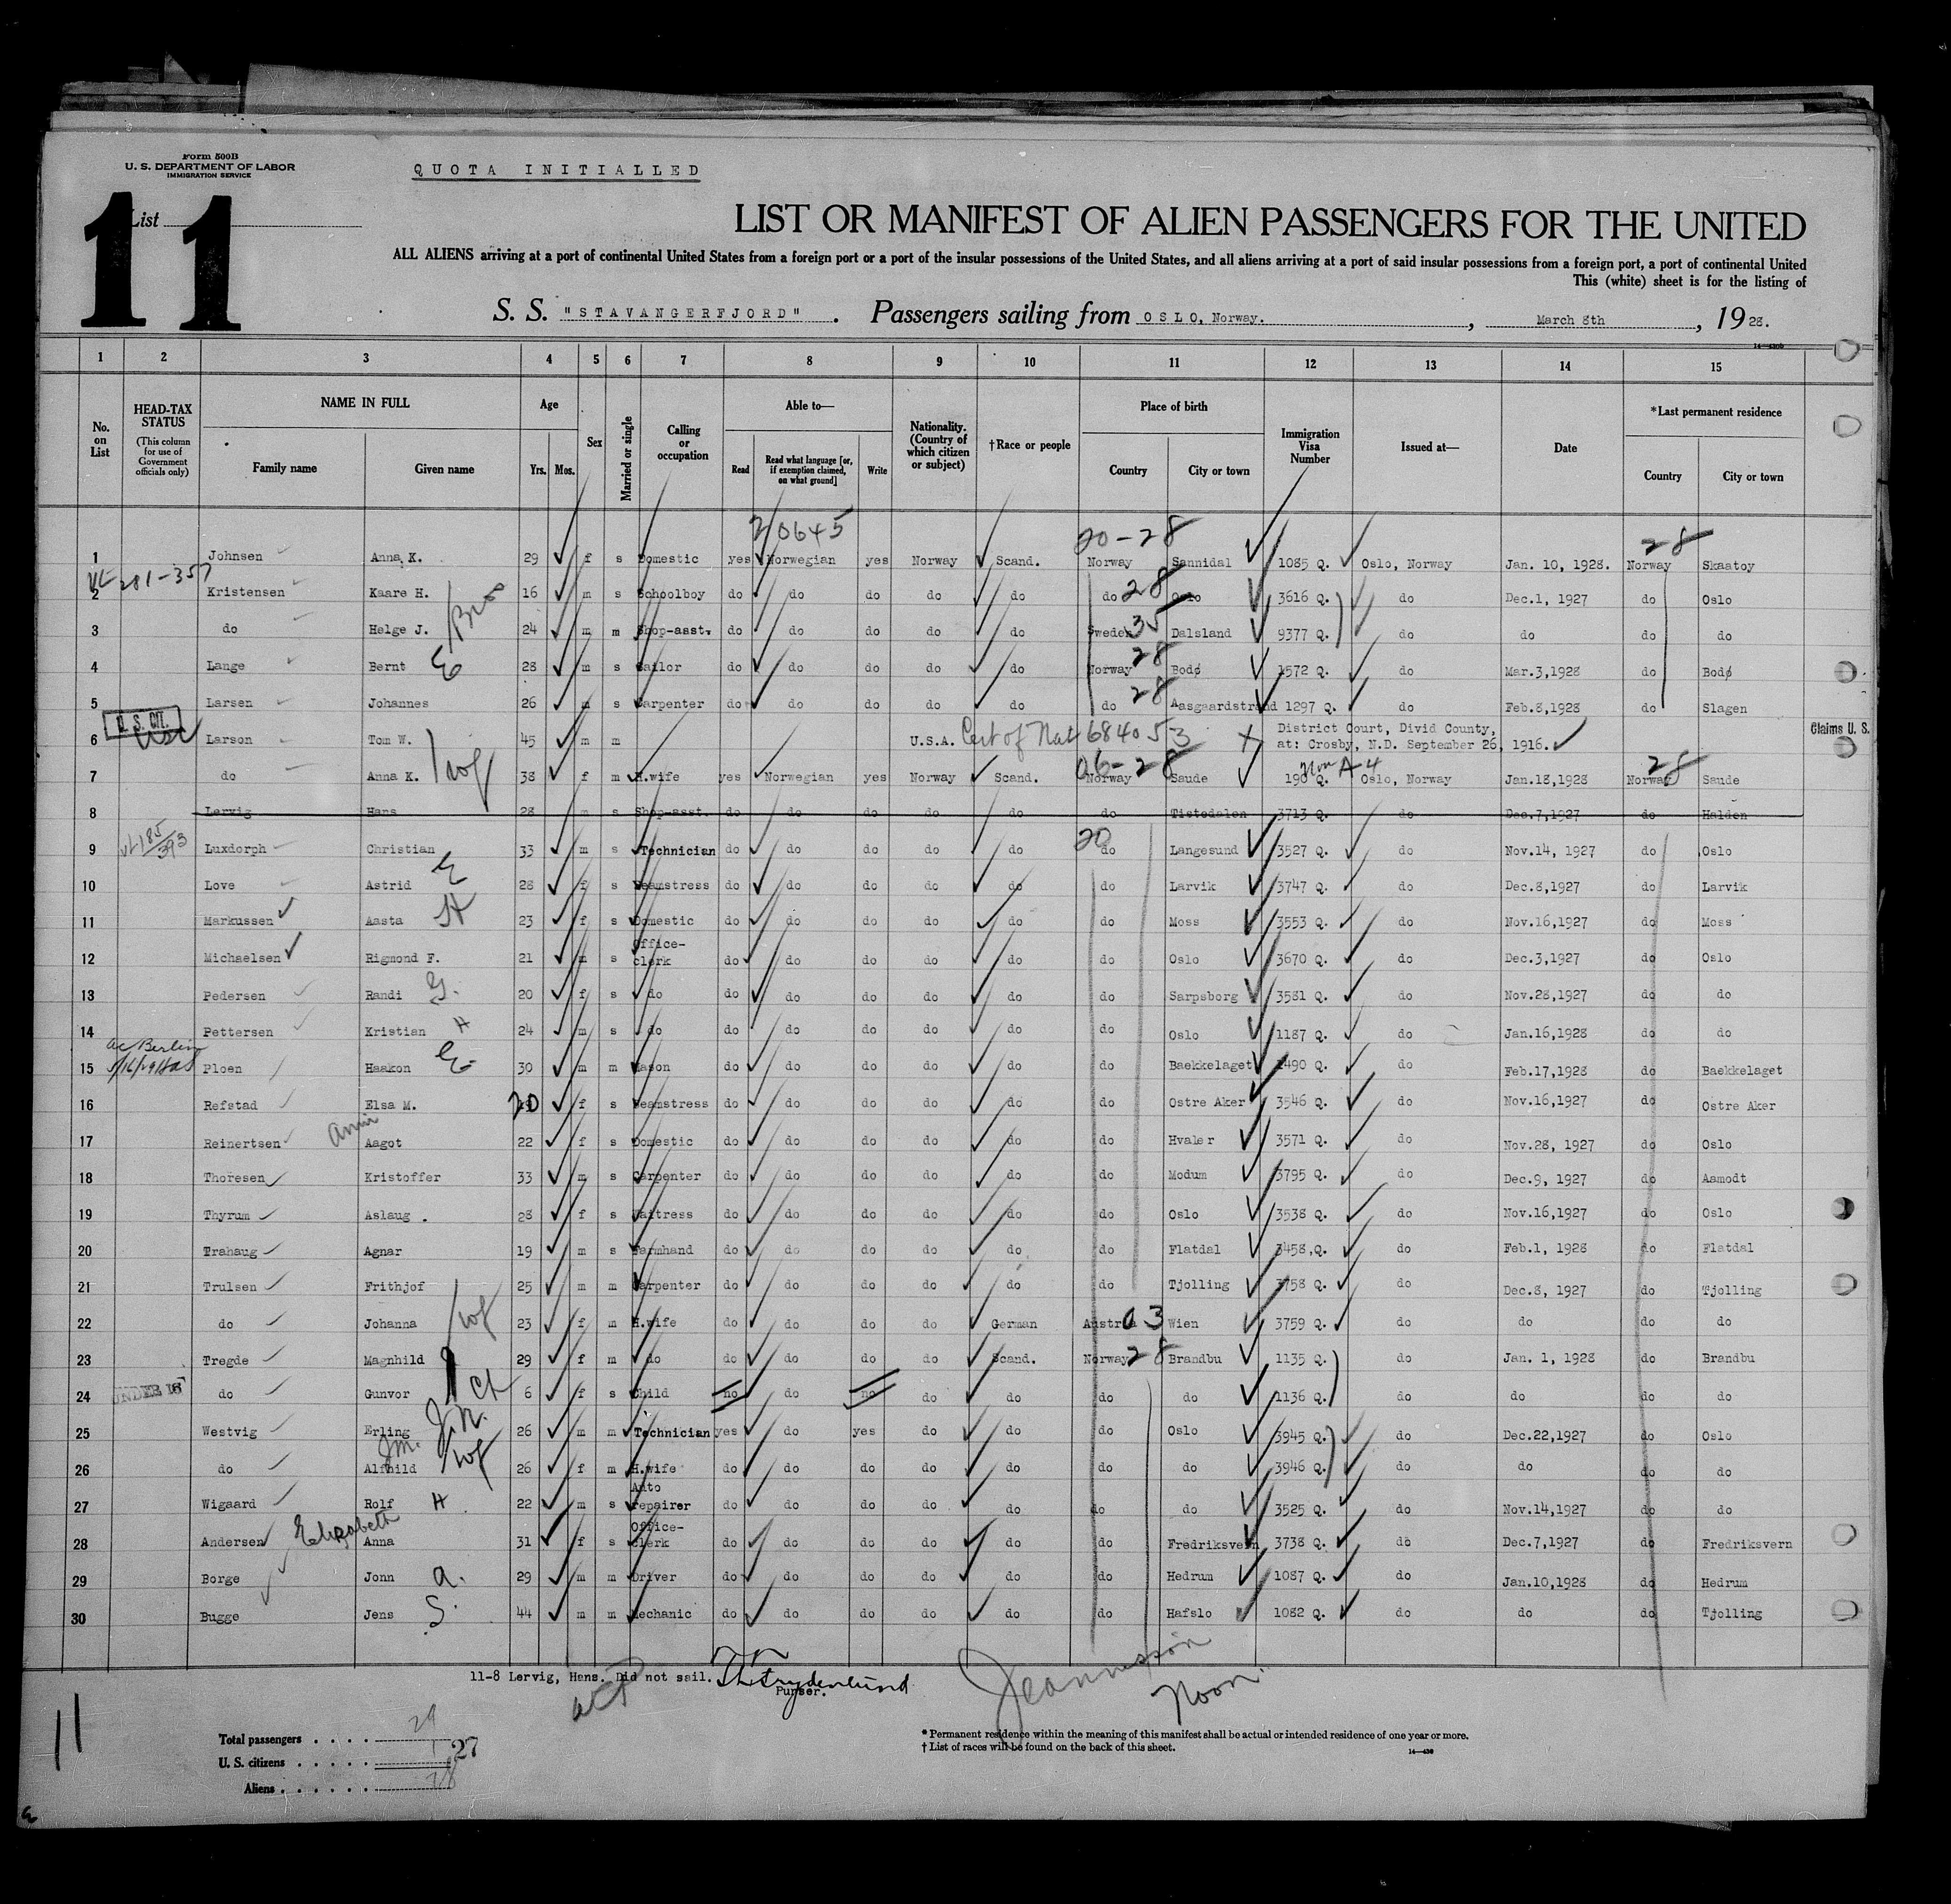 Form 500B
U. S. DEPARTMENT OF LABOR
IMMIGRATION SERVICE
QUOTA INITIALLED
11
List
LIST OR MANIFEST OF ALIEN PASSENGERS FOR THE UNITED
ALL ALIENS arriving at a port of continental United States from a foreign port or a port of the insular possessions of the United States, and all aliens arriving at a port of said insular possessions from a foreign port, a port of continental United
This (white) sheet is for the listing of
S. S. "STAVANGERFJORD". Passengers sailing from OSLO, Norway. , March 8th , 1928.
1 2 3 4 5 6 7 8 9 10 11 12 13 14 15
No. on List HEAD-TAX STATUS (This column for use of Government officials only) NAME IN FULL Family name Given name Age Yrs. Mos. Sex Married or single Calling or occupation Able to— Read Read what language [or, if exemption claimed, on what ground] Write Nationality. (Country of which citizen or subject) †Race or people Place of birth Country City or town Immigration Visa Number Issued at— Date *Last permanent residence Country City or town
20645 20-28 28
1 Johnsen Anna K. 29 f s Domestic yes Norwegian yes Norway Scand. Norway Sannidal 1085 Q. Oslo, Norway Jan. 10, 1928. Norway Skaatoy
2 Kristensen Kaare H. 16 m s Schoolboy do do do do do do 28 Oslo 3616 Q. do Dec.1, 1927 do Oslo
3 do Helge J. Bro 24 m m Shop-asst. do do do do do Sweden 35 Dalsland 9377 Q. do do do do
4 Lange Bernt E 28 m s Sailor do do do do do Norway 28 Bodø 1572 Q. do Mar.3,1928 do Bodø
5 Larsen Johannes 26 m s Carpenter do do do do do do 28 Aasgaardstrand 1297 Q. do Feb.8,1928 do Slagen
U. S. CIT.
6 USC Larson Tom W. 45 m m U.S.A. Cert of Nat 684053 District Court, Divid County, at: Crosby, N.D. September 26, 1916. Claims U. S.
7 do Anna K. wf 38 f m H.wife yes Norwegian yes Norway Scand. 06-28 Norway Saude 190 Q. Non A4 Oslo, Norway Jan.18,1928 Norway 28 Saude
8 Lervig Hans 28 m s Shop-asst. do do do do do do Tistedalen 3713 Q. do Dec.7,1927 do Halden
9 Luxdorph Christian 33 m s Technician do do do do do 20 do Langesund 3527 Q. do Nov.14, 1927 do Oslo
10 Love Astrid E 28 f s Seamstress do do do do do do Larvik 3747 Q. do Dec.8,1927 do Larvik
11 Markussen Aasta H 23 f s Domestic do do do do do do Moss 3553 Q. do Nov.16,1927 do Moss
12 Michaelsen Rigmond F. 21 m s Office-clerk do do do do do do Oslo 3670 Q. do Dec.3,1927 do Oslo
13 Pedersen Randi G. 20 f s do do do do do do do Sarpsborg 3581 Q. do Nov.28,1927 do do
14 Pettersen Kristian H 24 m s do do do do do do do Oslo 1187 Q. do Jan.16,1928 do do
15 Ploen Haakon E 30 m m Mason do do do do do do Baekkelaget 1490 Q. do Feb.17,1928 do Baekkelaget
16 Refstad Elsa M. 20 f s Seamstress do do do do do do Ostre Aker 3546 Q. do Nov.16,1927 do Ostre Aker
17 Reinertsen Aagot 22 f s Domestic do do do do do do Hvaler 3571 Q. do Nov.28, 1927 do Oslo
18 Thoresen Kristoffer 33 m s Carpenter do do do do do do Modum 3795 Q. do Dec.9, 1927 do Aamodt
19 Thyrum Aslaug 28 f s Waitress do do do do do do Oslo 3538 Q. do Nov.16,1927 do Oslo
20 Trahaug Agnar 19 m s Farmhand do do do do do do Flatdal 3458 Q. do Feb.1, 1928 do Flatdal
21 Trulsen Frithjof 25 m m Carpenter do do do do do do Tjolling 3758 Q. do Dec.8, 1927 do Tjolling
22 do Johanna wf 23 f m H.wife do do do do German Austria 03 Wien 3759 Q. do do do do
23 Tregde Magnhild 29 f m do do do do do Scand. Norway 28 Brandbu 1135 Q. do Jan. 1, 1928 do Brandbu
24 UNDER 16 do Gunvor ch 6 f s Child no do no do do do do 1136 Q. do do do do
25 Westvig Erling 26 m m Technician yes do yes do do do Oslo 3945 Q. do Dec.22,1927 do Oslo
26 do Alfhild wf 26 f m H.wife do do do do do do do 3946 Q. do do do do
27 Wigaard Rolf H 22 m s Auto repairer do do do do do do do 3525 Q. do Nov.14,1927 do do
28 Andersen Elizabeth Anna 31 f s Office-clerk do do do do do do Fredriksvern 3738 Q. do Dec.7,1927 do Fredriksvern
29 Borge Jonn A. 29 m m Driver do do do do do do Hedrum 1087 Q. do Jan.10,1928 do Hedrum
30 Bugge Jens S. 44 m m Mechanic do do do do do do Hafslo 1082 Q. do do do Tjolling
11-8 Lervig, Hans. Did not sail.
Purser.
Noon.
11
Total passengers . . . . 29
U. S. citizens . . . . . 1 27
Aliens . . . . . . 28
* Permanent residence within the meaning of this manifest shall be actual or intended residence of one year or more.
† List of races will be found on the back of this sheet.